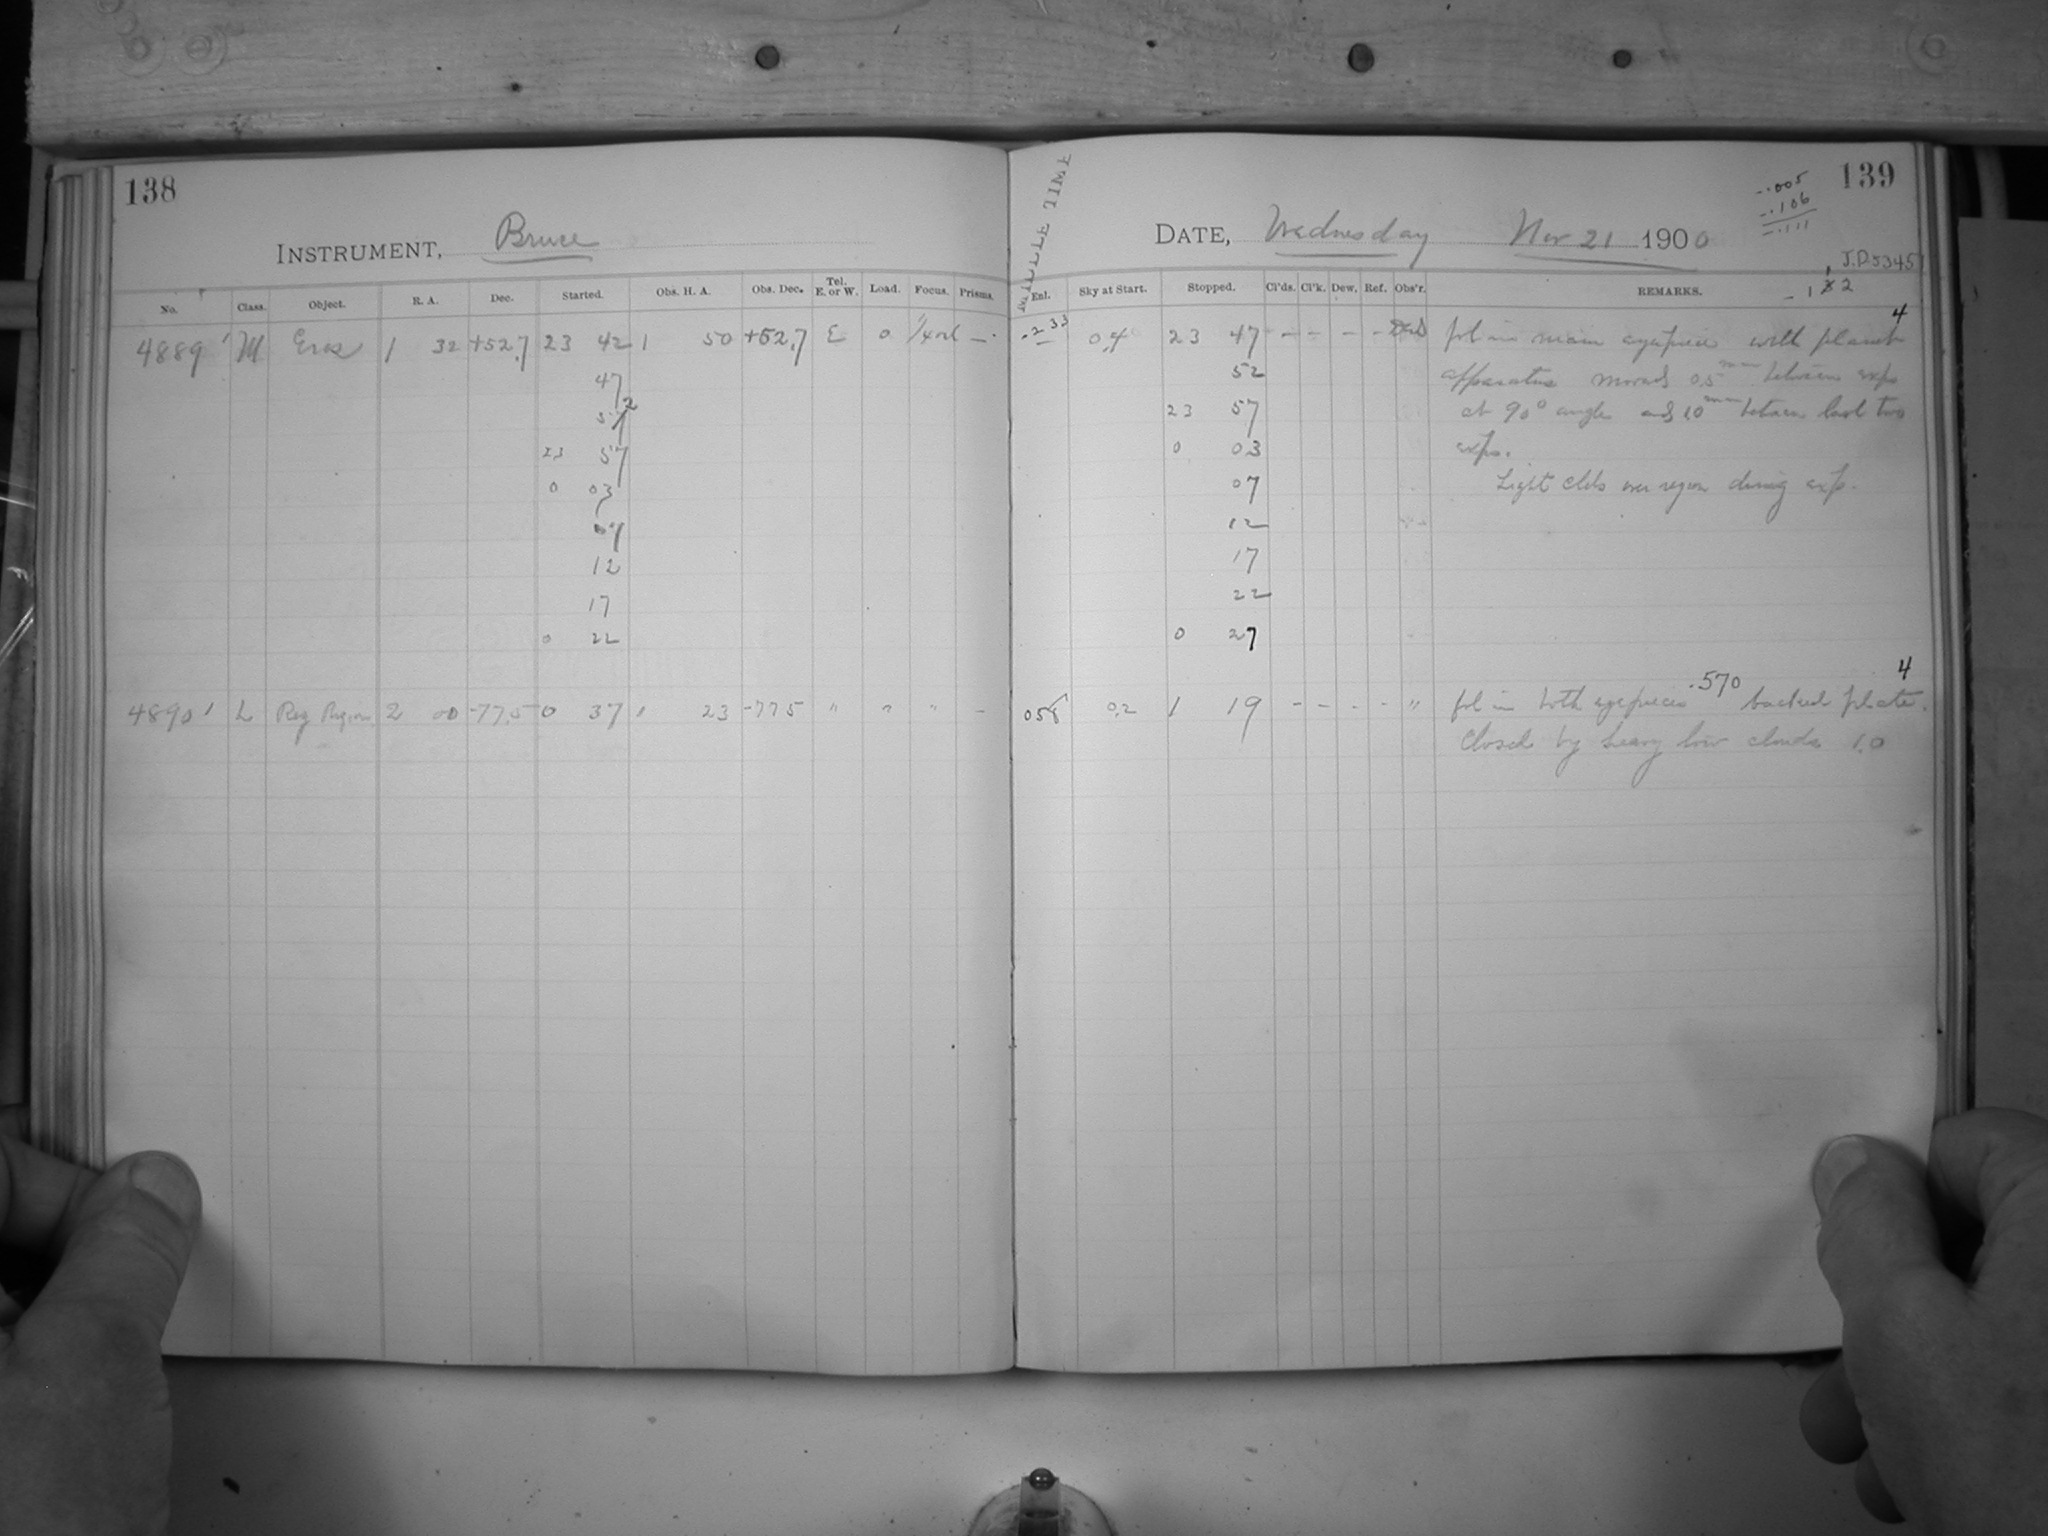 138
INSTRUMENT, Bruce
No. Class. Object. R. A. Dec. Started. Obs. H. A. Obs. Dec. Tel. E. or W. Load. Focus. Prisms.
4889 M Eros 1 32 +52.7 23 42 1 50 +52.7 E 0 —
47
52
23 57
0 03
07
12
17
0 22
4890 L Reg Region 2 00 -77.5 0 37 23 -775 " " " -
MIDDLE TIME
139
-.005
-.106
-.111
DATE, Wednesday Nov 21 1900
J.D. 5345
Enl. Sky at Start. Stopped. Cl'ds. Cl'k. Dew. Ref. Obs'r. REMARKS.
-1 2
4
-.233 0.4 23 47 - - - - fol in main eyepiece with planet
52 apparatus moved 0.5 mm between exps
23 57 at 90° angles and 1.0 mm between last two
0 03 exps.
07 Light clds over region during exp.
12
17
22
0 27
4
058 0.2 1 19 - - - - " fol in both eyepieces .570 backed plate.
Closed by heavy low clouds 1.0